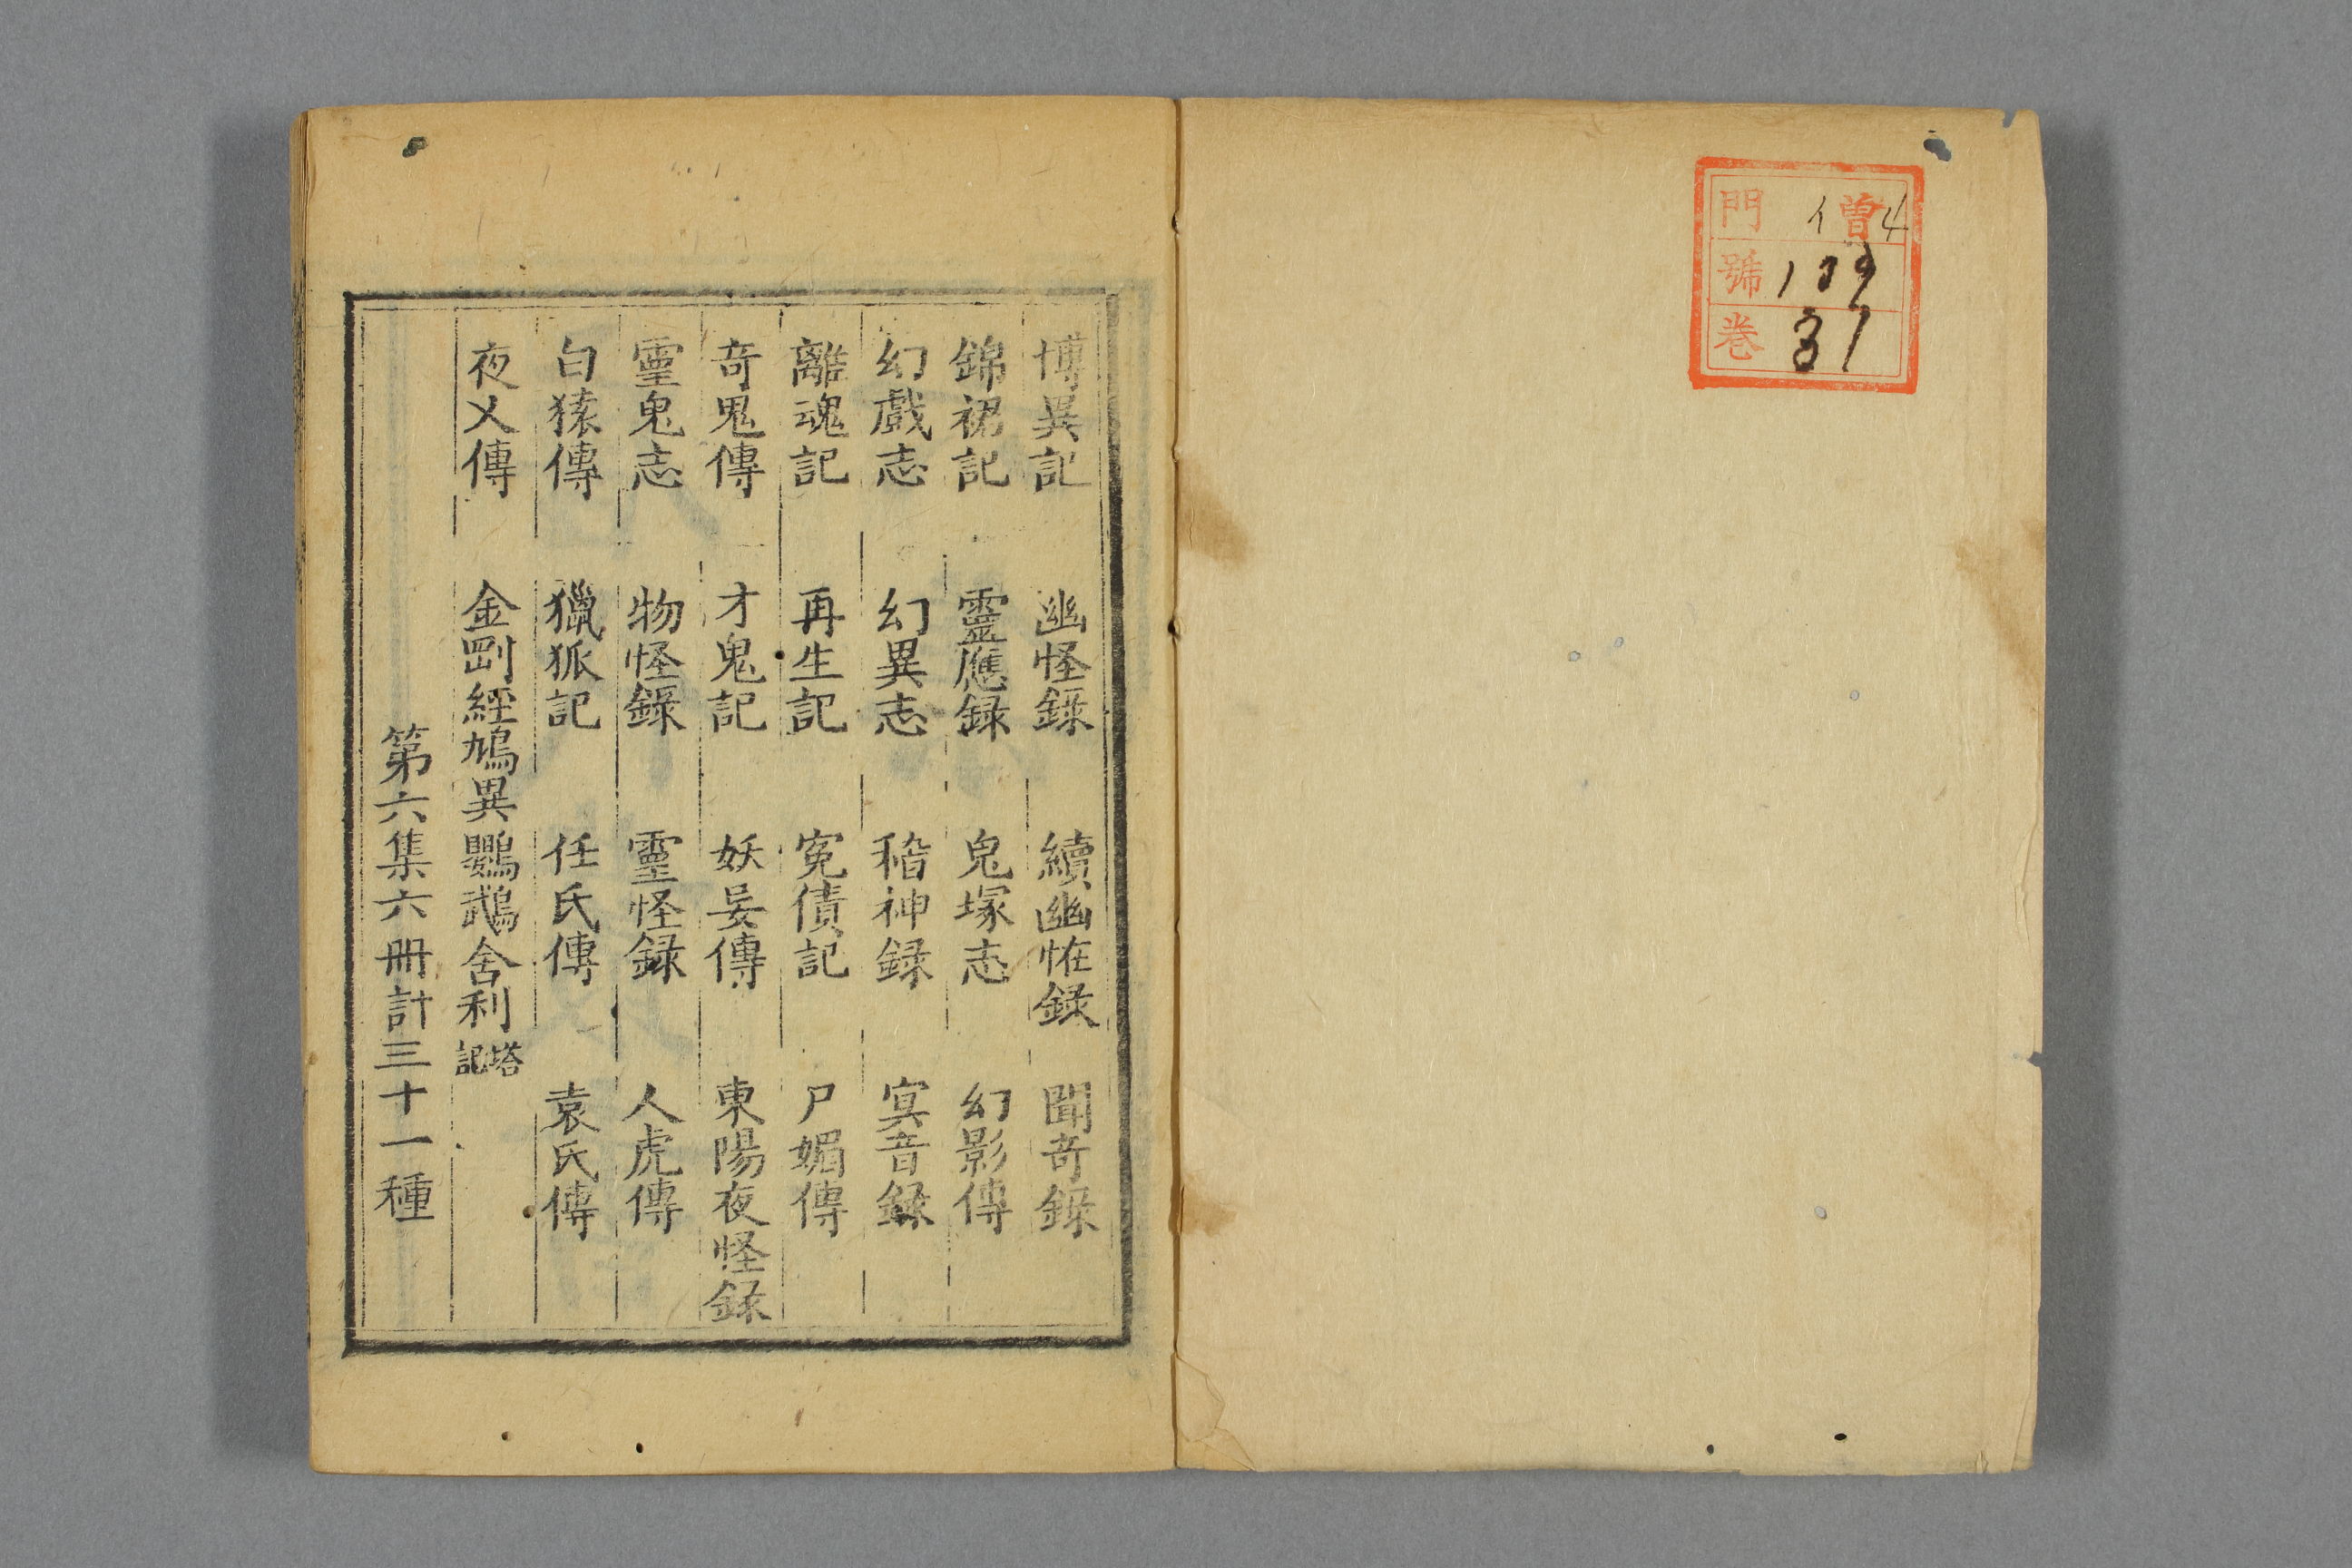 門 イ曽4
號 109
卷 31
博異記 幽怪錄 續幽恠錄 聞竒錄
錦裙記 靈應録 鬼塚志 幻影傳
幻戲志 幻異志 稽神録 冥音錄
離魂記 再生記 寃債記 尸媚傳
竒鬼傳 才鬼記 妖妄傳 東陽夜怪録
靈鬼志 物怪錄 靈怪録 人虎傳
白猿傳 獵狐記 任氏傳 袁氏傳
夜乂傳 金剛經鳩異 鸚鵡舍利塔記
第六集六冊計三十一種